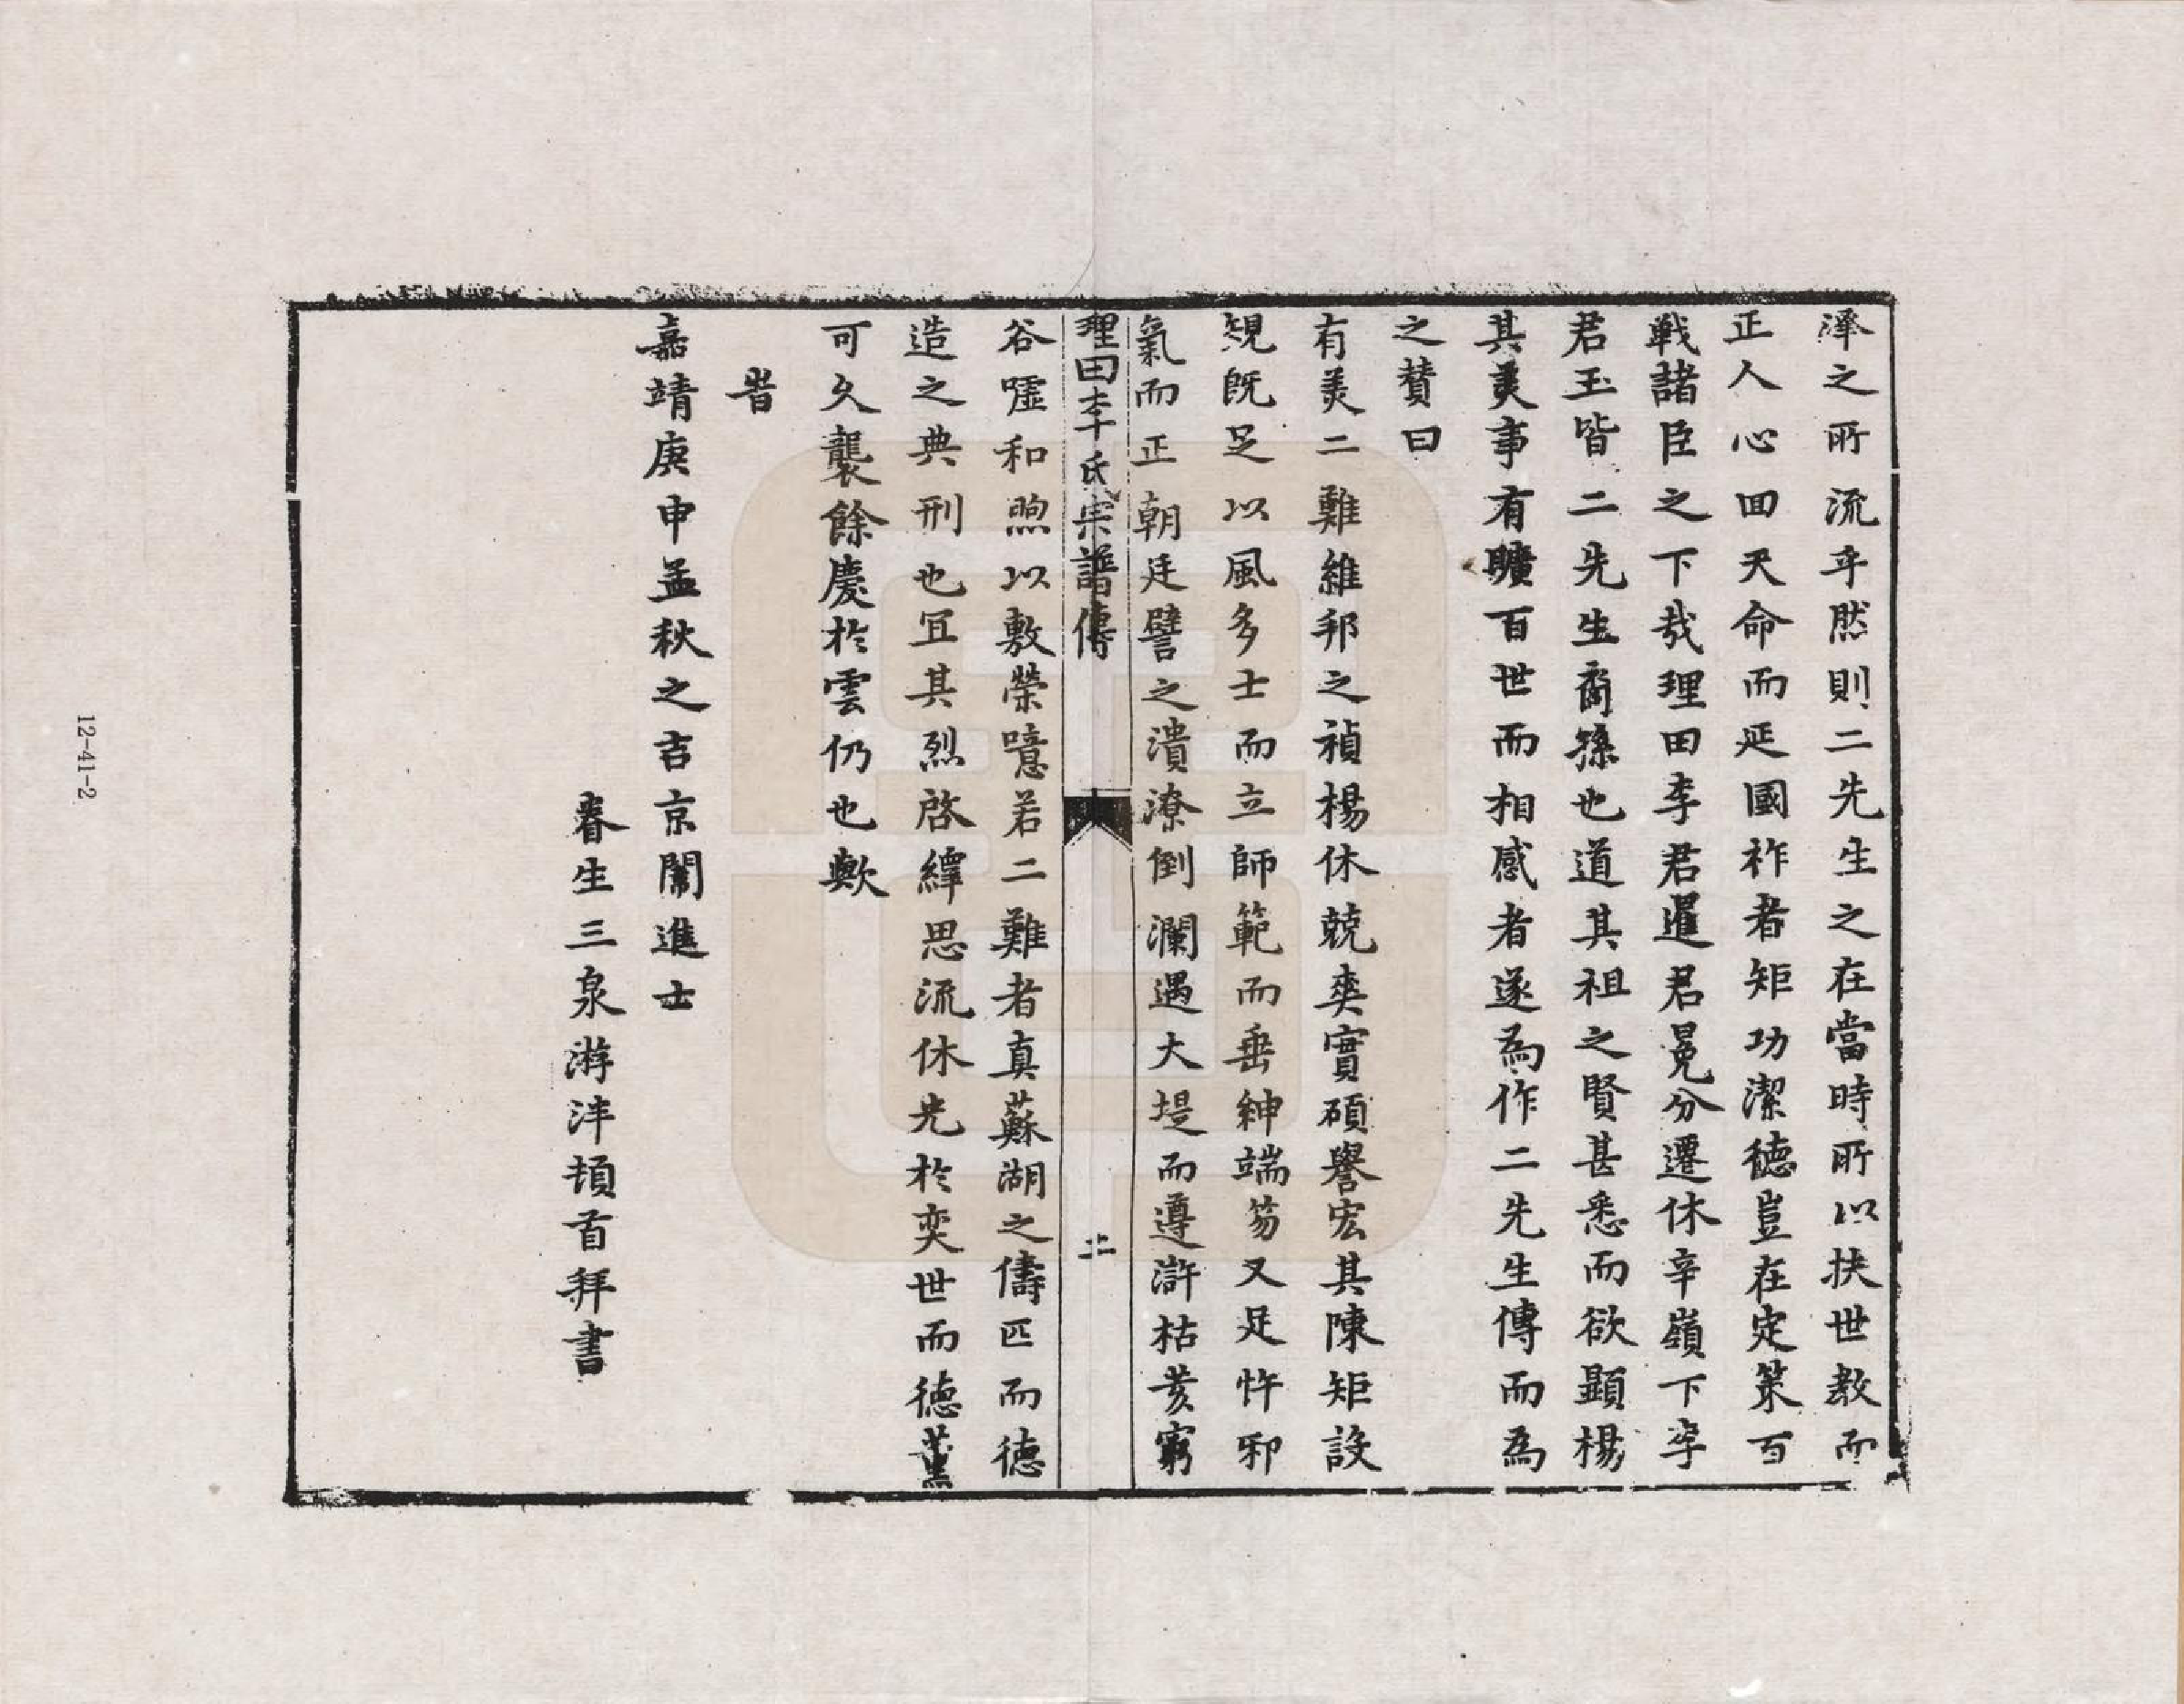 澤之所流乎然則二先生之在當時所以扶世教而
正人心回天命而延國祚者矩功潔德豈在定策百
戰諸臣之下哉理田李君暹君晃分遷休辛嶺下李
君玉皆二先生裔孫也道其祖之賢甚悉而欲顯楊
其美事有曠百世而相感者遂為作二先生傳而為
之贊曰
有美二難維邦之禎楊休兢爽實碩譽宏其陳矩設
規既足以風多士而立師範而垂紳端笏又足忤邪
氣而正朝廷譬之潰潦倒瀾遇大堤而遵滸枯荄窮
理田李氏宗譜傳
谷噓和煦以敷榮噫若二難者真蘇湖之儔匹而德
造之典刑也宜其烈啓繹思流休光於奕世而德薰
可久襲餘慶於雲仍也歟
旹
嘉靖庚申孟秋之吉京闈進士
眷生三泉游沣頓首拜書
12-41-2